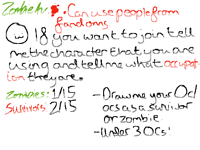 Zombie Au • Can use people from
fandoms
If you want to join tell
me the character that you are
using and tell me what occupat-
ion they are.
Zombies: 1/15
Survivors 2/15
- Draw me your Oc/
ocs as a survivor
or zombie.
- Under 3 OCs!